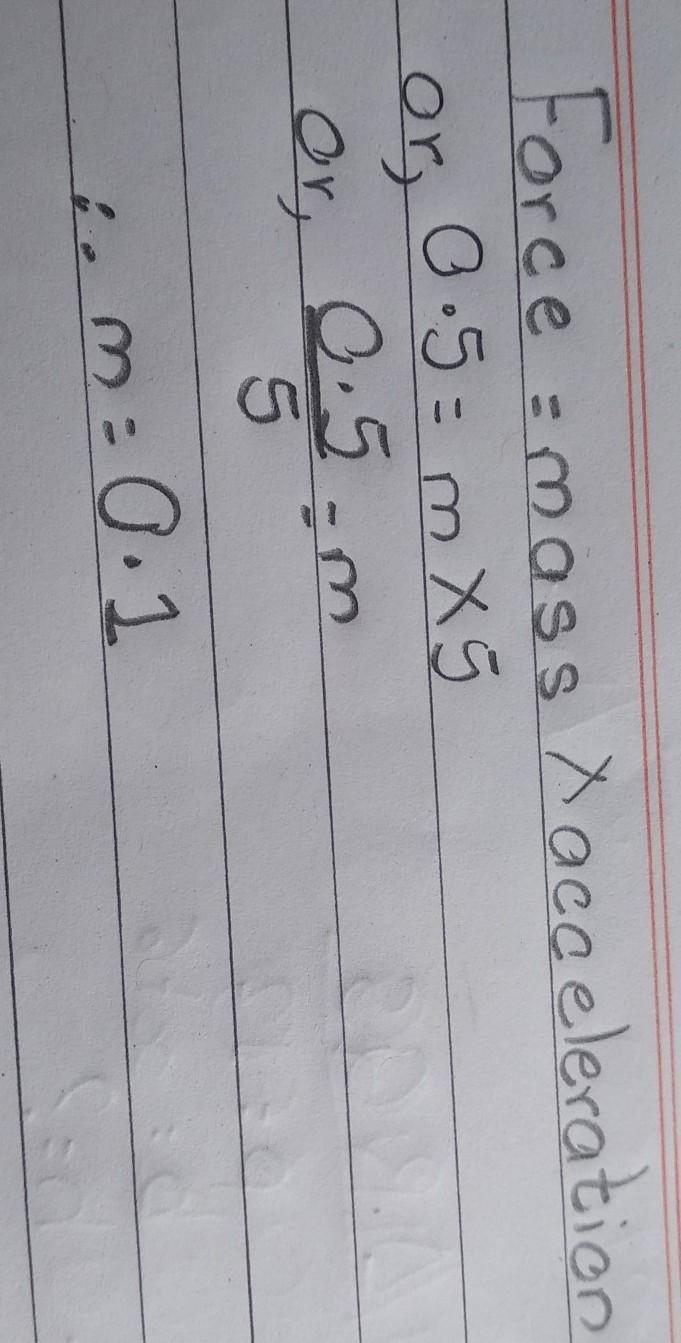 Force = mass × acceleration
or, 0.5 = m × 5
or, 0.5/5 = m
∴ m = 0.1